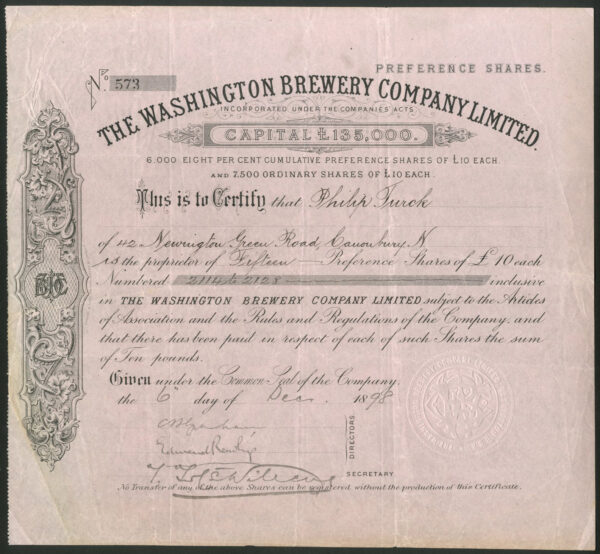 PREFERENCE SHARES.
No. 573
THE WASHINGTON BREWERY COMPANY LIMITED.
INCORPORATED UNDER THE COMPANIES' ACTS.
CAPITAL £135,000.
6,000 EIGHT PER CENT CUMULATIVE PREFERENCE SHARES OF £10 EACH
AND 7,500 ORDINARY SHARES OF £10 EACH.
This is to Certify that Philip Turck
of 42 Newington Green Road, Canonbury, N
is the proprietor of Fifteen Preference Shares of £10 each
Numbered 2114 to 2128 inclusive
in THE WASHINGTON BREWERY COMPANY LIMITED subject to the Articles
of Association and the Rules and Regulations of the Company, and
that there has been paid in respect of each of such Shares the sum
of Ten pounds.
Given under the Common Seal of the Company.
the 6 day of Dec. 1898
Edward
DIRECTORS
SECRETARY
No Transfer of any of the above Shares can be registered without the production of this Certificate.